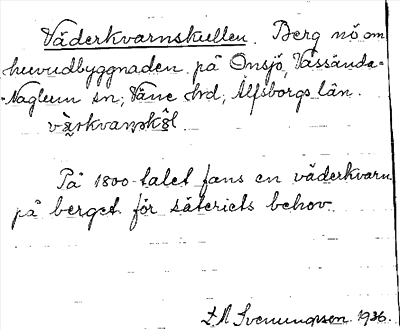 Väderkvarnskullen. Berg nö om
huvudbyggnaden på Onsjö, Vassända-
-Naglum sn; Väne hd, Älfsborgs län.

På 1800-talet fans en väderkvarn
på berget för säteriets behov.
L A Svenungsson 1936.